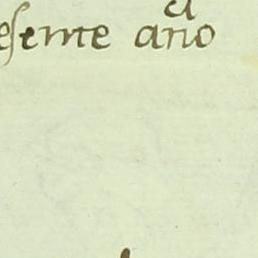 esente año